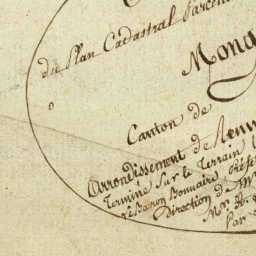 du Plan Cadastral Parcell
Mong
Canton de
Arrondissement de Neu
Terminé sur le Terrain
Baron Bonnaire Préfe
Direction de M
Mr
Par